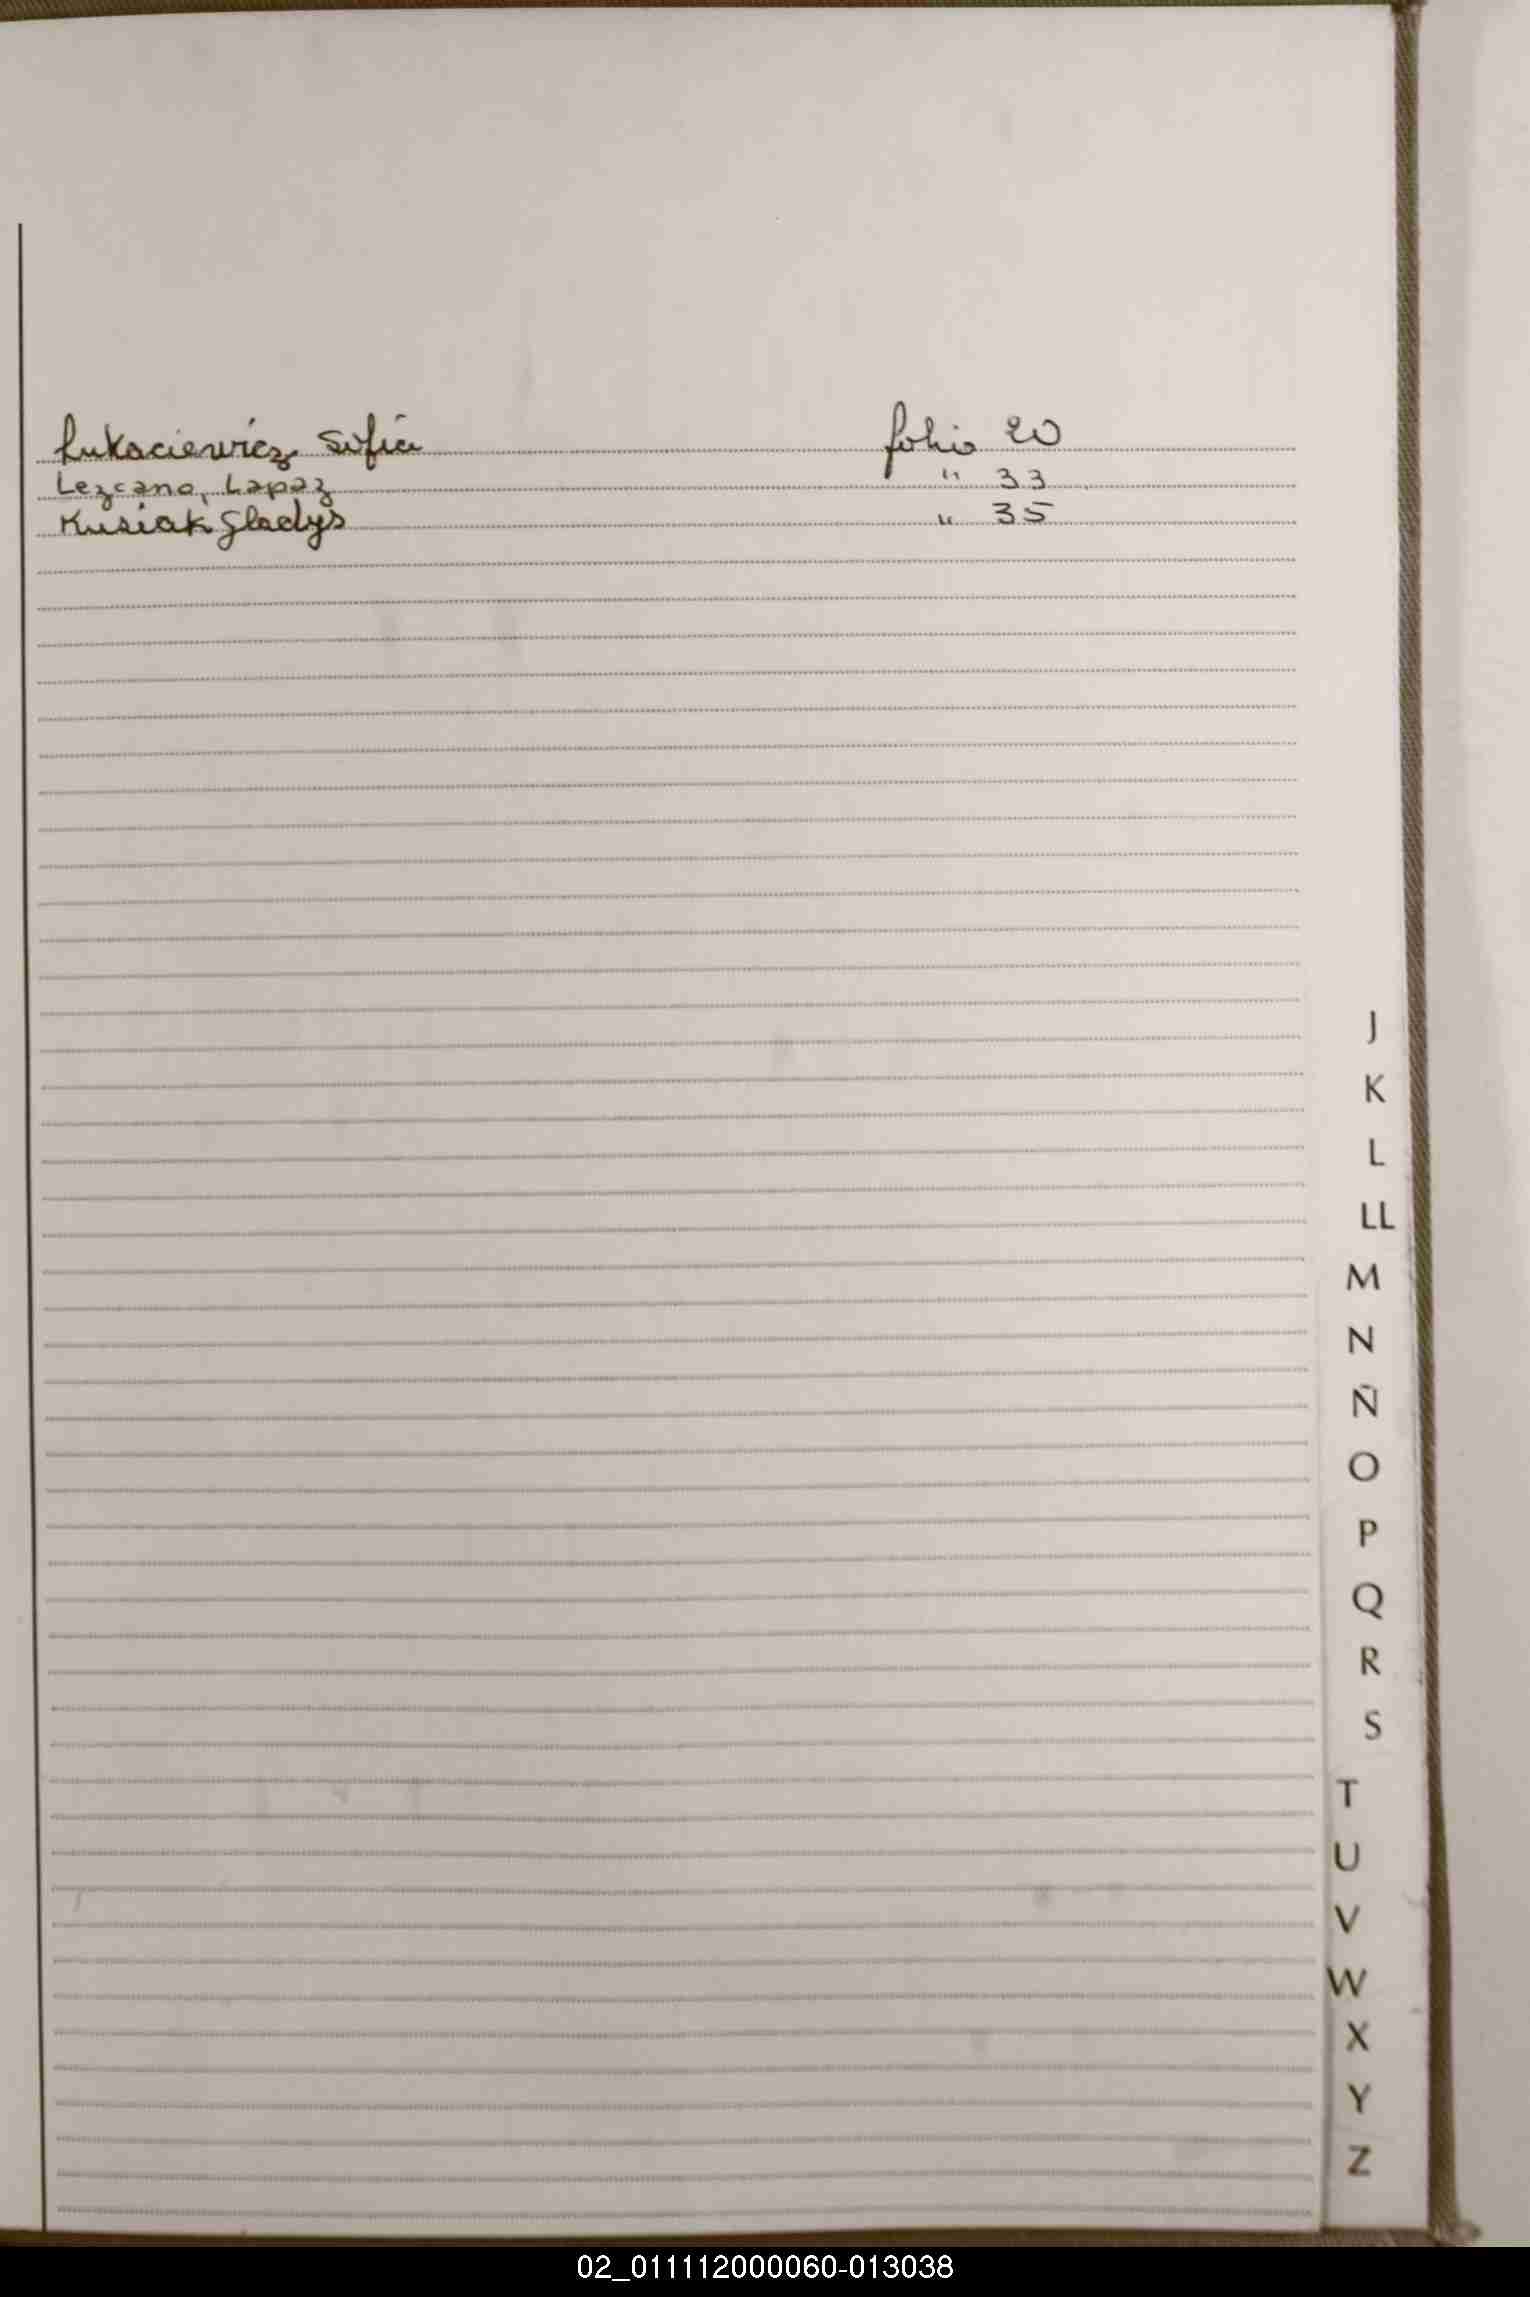 Lukaciewicz Sofia folio 20
Lezcano, Lapaz " 33
Kusiak Gladys " 35
J
K
L
LL
M
N
Ñ
O
P
Q
R
S
T
U
V
W
X
Y
Z
02_011112000060-013038